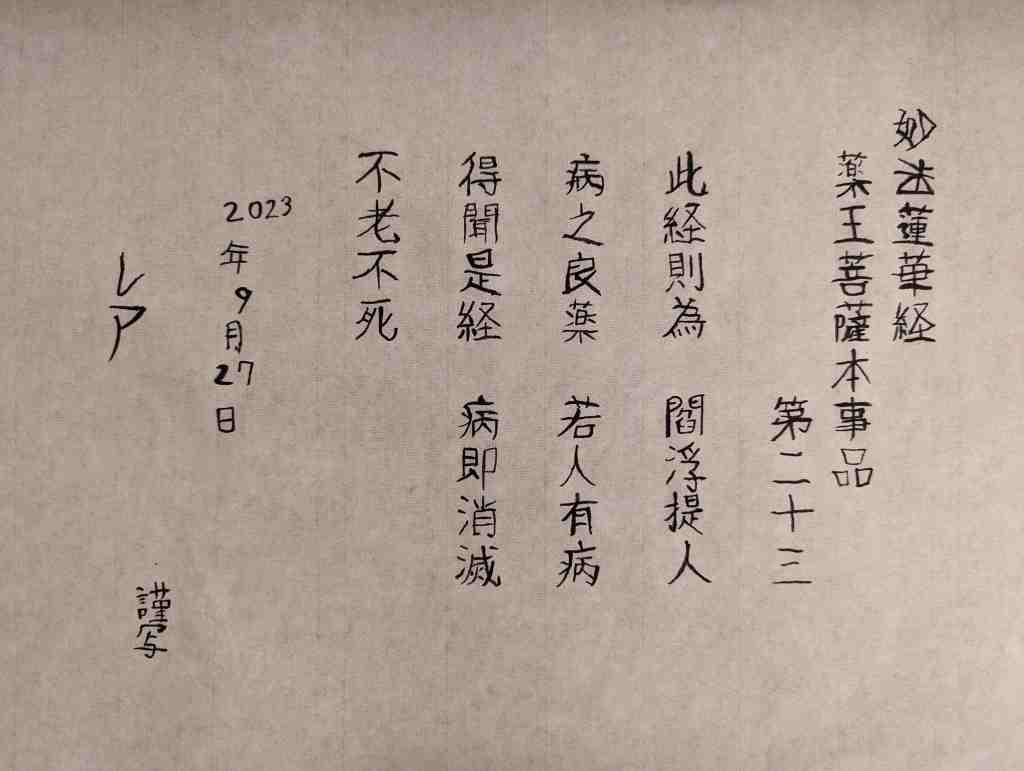 妙法蓮華経
薬王菩薩本事品
第二十三
此経則為 閻浮提人
病之良薬 若人有病
得聞是経 病即消滅
不老不死
2023年9月27日
レア
謹写